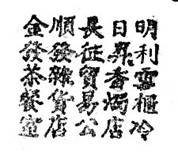 明利雪櫃冷
日昇香燭店
長征貿易公
順發雜貨店
金發茶餐室